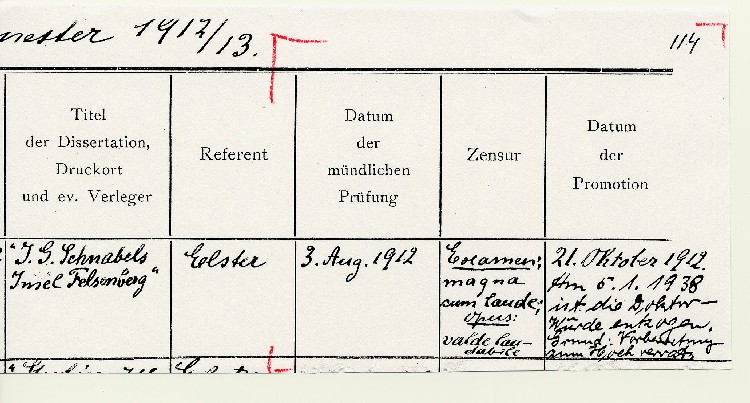 mester 1912/13.
114
Titel
der Dissertation,
Druckort
und ev. Verleger
Referent
Datum
der
mündlichen
Prüfung
Zensur
Datum
der
Promotion
"J. G. Schnabels
Insel Felsenberg"
Elster
3. Aug. 1912
Examen:
magna
cum laude;
opus:
valde lau-
dabile
21. Oktober 1912.
Am 5. 1. 1938
ist die Doktor-
Würde entzogen.
Grund: Vorbereitung
zum Hochverrats